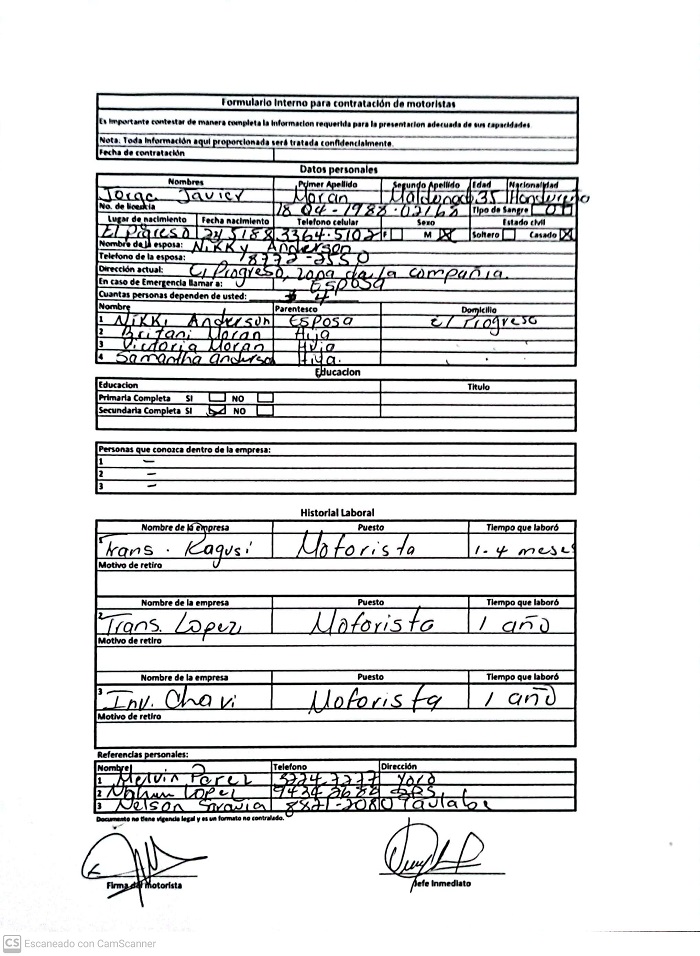 Formulario Interno para contratación de motoristas
Es importante contestar de manera completa la informacion requerida para la presentacion adecuada de sus capacidades
Nota: Toda información aquí proporcionada será tratada confidencialmente.
Fecha de contratación
Datos personales
Nombres Primer Apellido Segundo Apellido Edad Nacionalidad
Jorge Javier Moran Maldonado 35 Hondureño
No. de licencia Tipo de Sangre
Lugar de nacimiento Fecha nacimiento Telefono celular Sexo Estado civil
El Progreso 3364-5102 F M X Soltero Casado X
Nombre de la esposa: Nikky Anderson
Telefono de la esposa:
Dirección actual: El Progreso, zona de la compañia.
En caso de Emergencia llamar a: Esposa
Cuantas personas dependen de usted: 4
Nombre Parentesco Domicilio
1 Nikki Anderson Esposa El Progreso
2 Britani Moran Hija
3 Victoria Moran Hija
4 Samantha anderson Hija.
Educacion
Educacion Titulo
Primaria Completa SI NO
Secundaria Completa SI NO
Personas que conozca dentro de la empresa:
1 –
2 –
3 –
Historial Laboral
Nombre de la empresa Puesto Tiempo que laboró
1 Trans. Ragusi Motorista 1-4 meses
Motivo de retiro
Nombre de la empresa Puesto Tiempo que laboró
2 Trans. Lopez Motorista 1 año
Motivo de retiro
Nombre de la empresa Puesto Tiempo que laboró
3 Inv. Chavi Motorista 1 año
Motivo de retiro
Referencias personales:
Nombre Telefono Dirección
1 Melvin Perez Yoro
2 Lopez
3 Nelson Saravia 8821-2080 Taulabe
Documento no tiene vigencia legal y es un formato no contralado.
Firma del motorista Jefe Inmediato
CS Escaneado con CamScanner